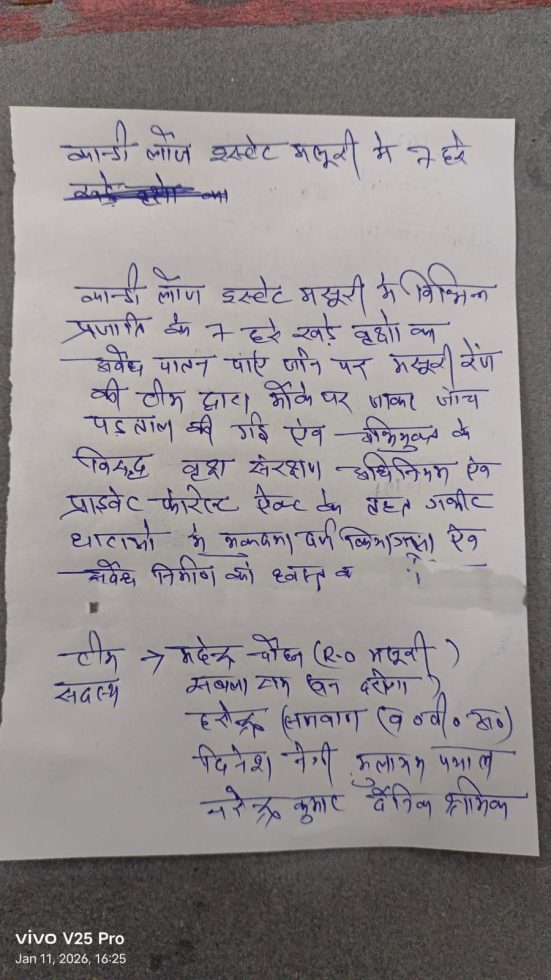 कान्डी लौज इस्टेट मसूरी मे 7 हरे
खड़े वृक्षो का
कान्डी लौज इस्टेट मसूरी मे विभिन्न
प्रजाति के 7 हरे खड़े वृक्षो का
अवैध पातन पाए जाने पर मसूरी रेंज
की टीम द्वारा मौके पर जाकर जाँच
पड़ताल की गई ऐंव अभियुक्त के
विरूद्ध वृक्ष संरक्षण अधिनियम ऐंव
प्राइवेट फोरेस्ट ऐक्ट के तहत गम्भीर
धाराओ मे मुकदमा दर्ज किया गया ऐंव
अवैध निर्माण को ध्वस्त
टीम → महेन्द्र चौहान (R.O मसूरी)
सदस्य वन दरोगा
(व०बी०अ०)
दिनेश नेगी
नरेन्द्र कुमार दैनिक श्रमिक
vivo V25 Pro
Jan 11, 2026, 16:25